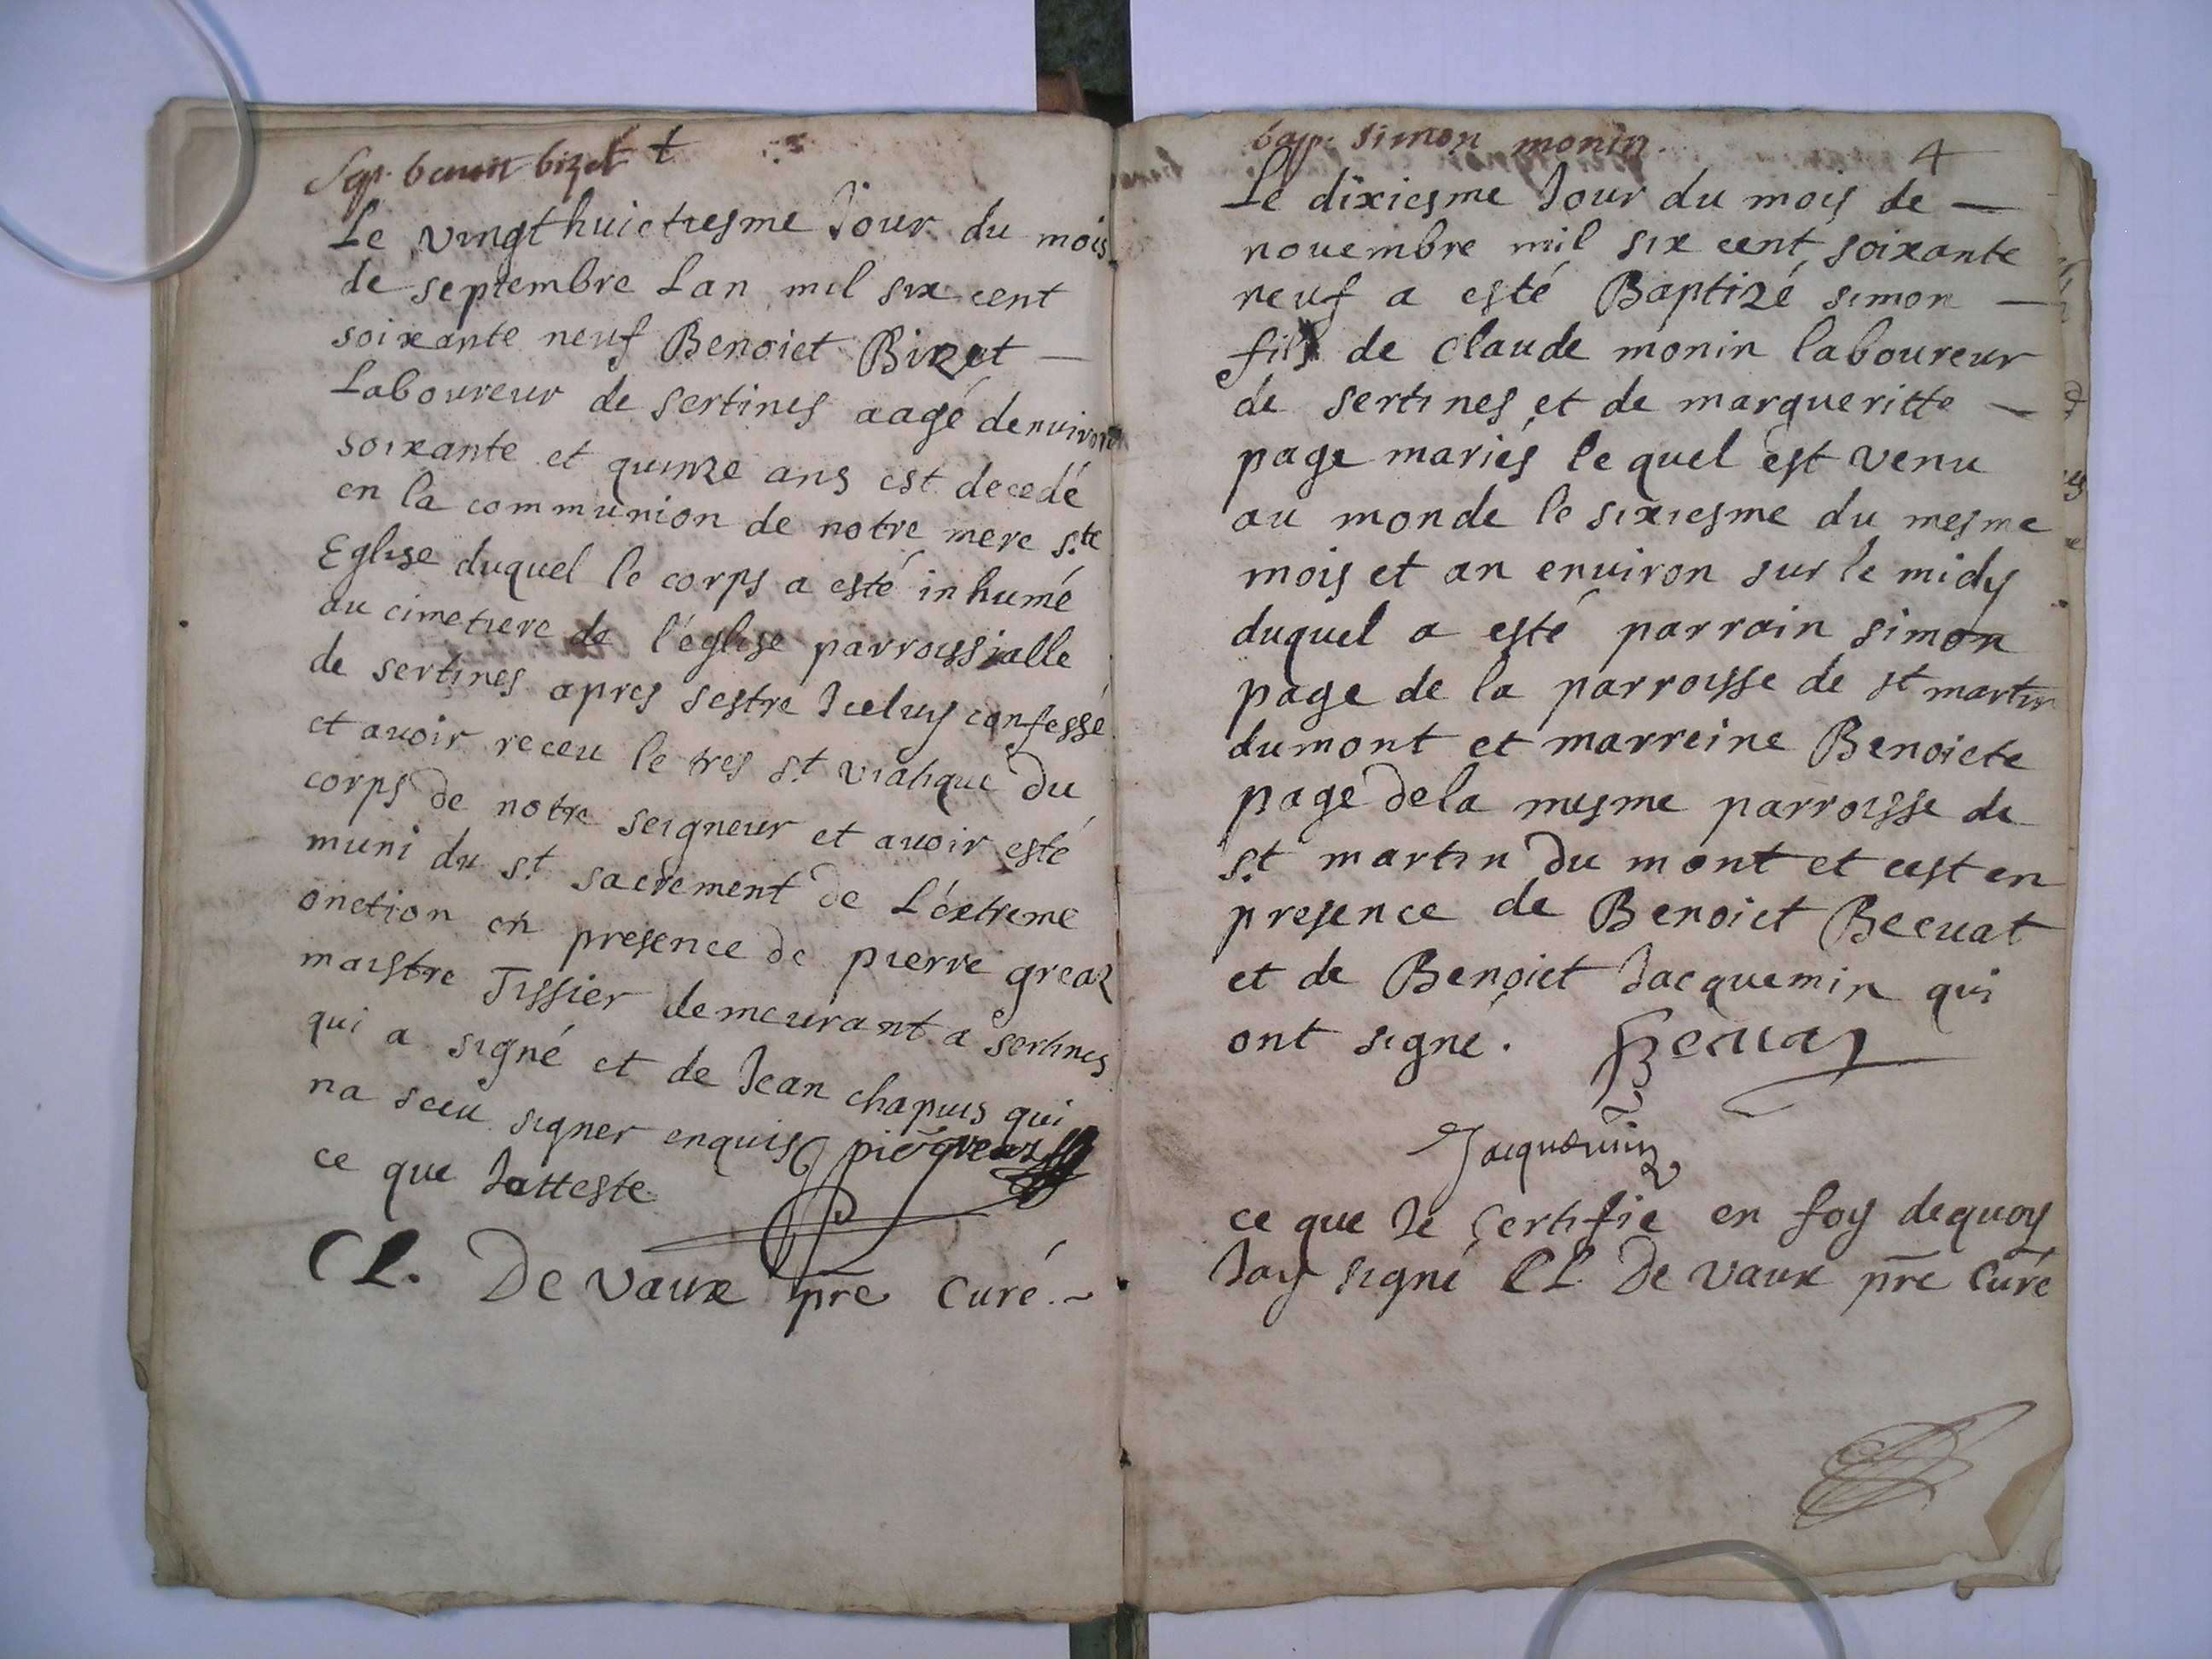 Sep. benoit bizet t
Le vingt huictiesme Jour du mois
de septembre Lan mil six cent
soixante neuf Benoict Bizet —
Laboureur de sertines aagé denviron
soixante et quinze ans est decedé
en la communion de notre mere s.te
Eglise duquel le corps a esté inhumé
au cimetiere de l'église parroissialle
de sertines apres sestre Iceluy confessé
et avoir receu le tres s.t viatique du
corps de notre seigneur et avoir esté
muni du s.t sacrement de L'éxtreme
onction en presence de pierre greaz
maistre Tissier demeurant a sertines
qui a signé et de Jean chapuis qui
na sceu signer enquis greaz
ce que Jatteste
CL. De vaux pre Curé. ~
bap. simon monin.
4
Le dixiesme Jour du mois de —
novembre mil six cent soixante
neuf a esté Baptizé simon —
fils de claude monin laboureur
de sertines et de margueritte —
page mariés le quel est venu
au monde le sixiesme du mesme
mois et an environ sur le midy
duquel a esté parrain simon
page de la parroisse de st martin
dumont et marreine Benoicte
page dela mesme parroisse de
s.t martin du mont et cest en
presence de Benoict Becuat
et de Benoict Jacquemin qui
ont signé. Becuat
Jacquemin
ce que Je certifie en foy dequoy
Jay signé CL De vaux pre Curé